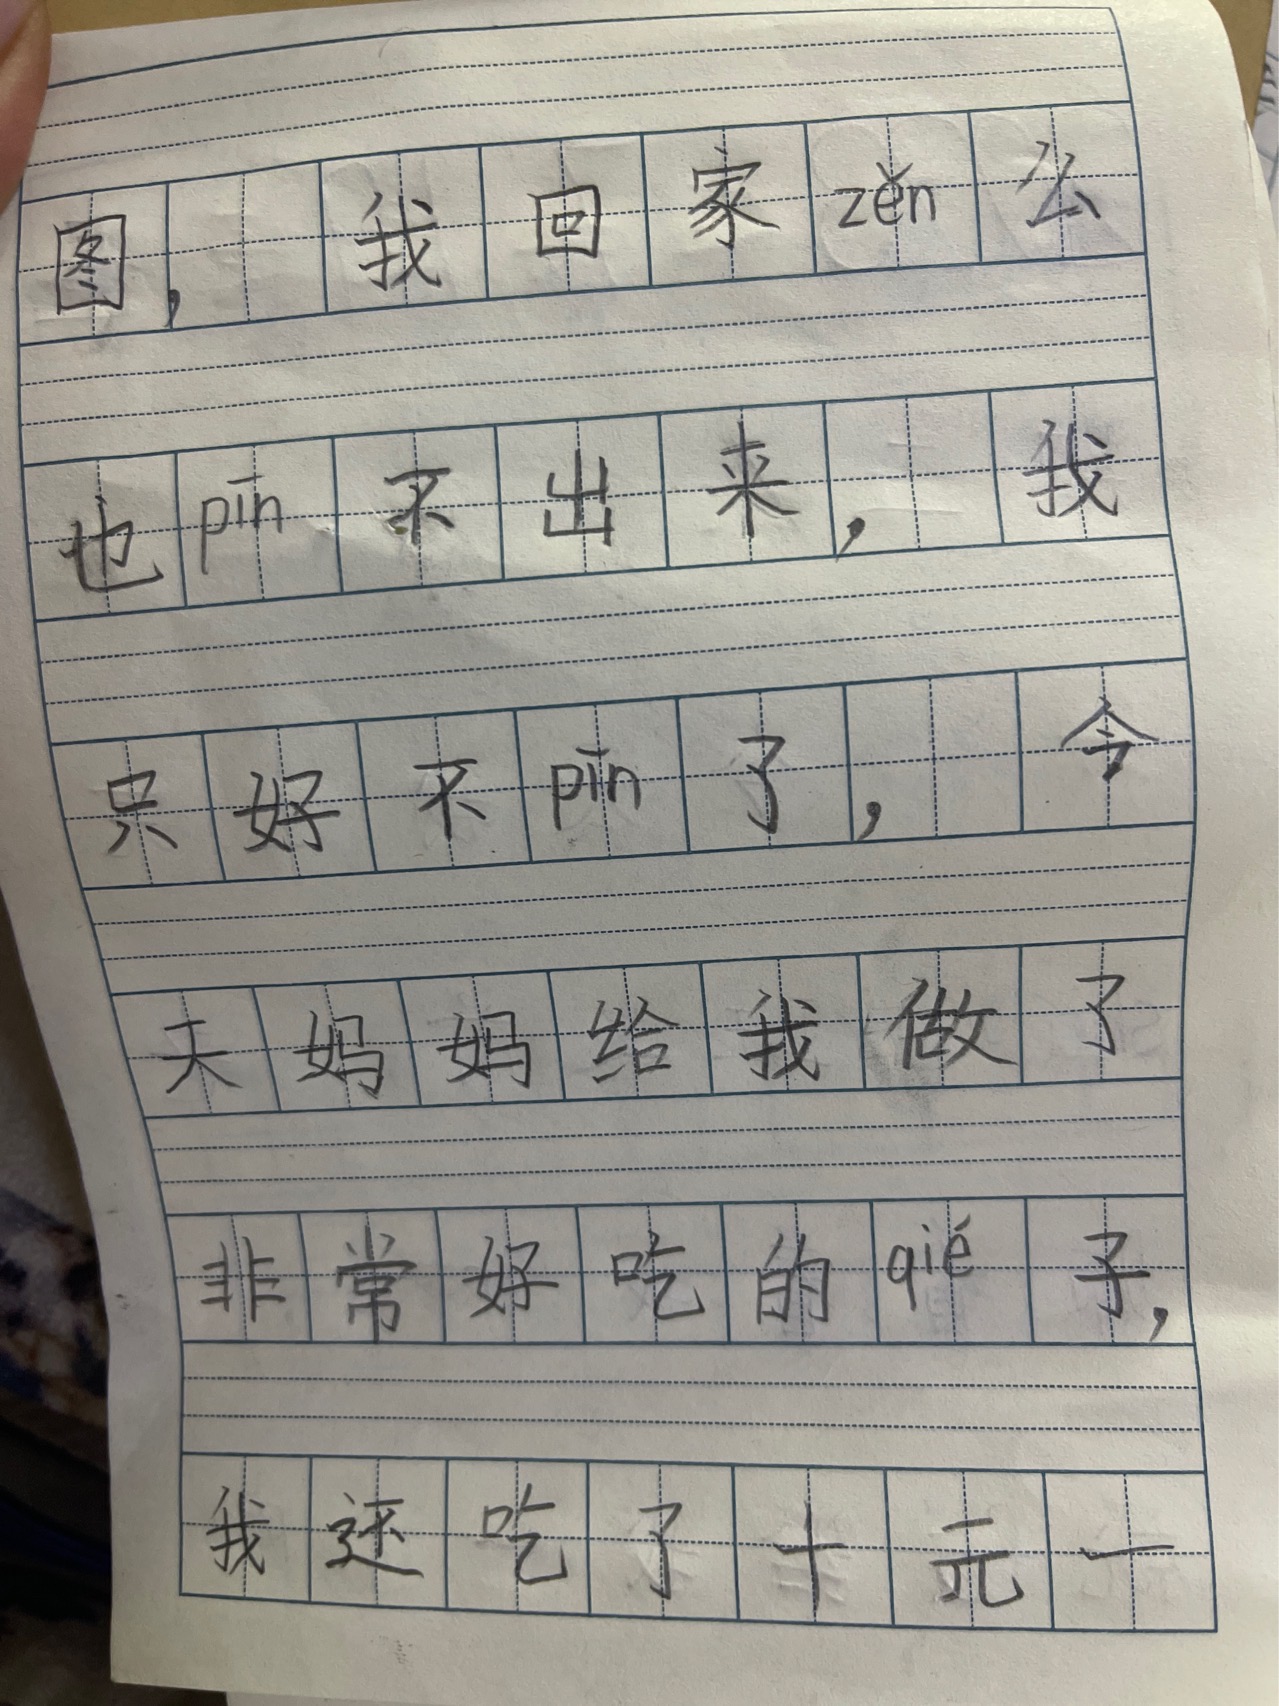 图，我回家zěn么
也pīn不出来，我
只好不pīn了，今
天妈妈给我做了
非常好吃的qié子，
我还吃了十元一